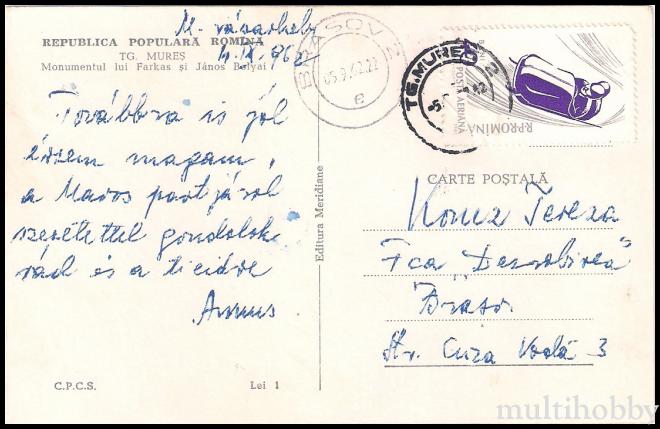 M. vásárhely
4. IX. 962
REPUBLICA POPULARĂ ROMÎNĂ
TG. MUREŞ
Monumentul lui Farkas şi János Bolyai
Továbbra is jól
érzem magam,
a Maros partjáról
szeretettel gondolok
rád és a ticidre
BRAŞOV 2
05.9.62.22
e
TG. MUREŞ 2
BANI
POSTA AERIANA
R.P.ROMÎNĂ
CARTE POŞTALĂ
Editura Meridiane
Tereza
Fca „Dezrobirea"
Brasov
Str. Cuza Vodă 3
C.P.C.S.
Lei 1
multihobby